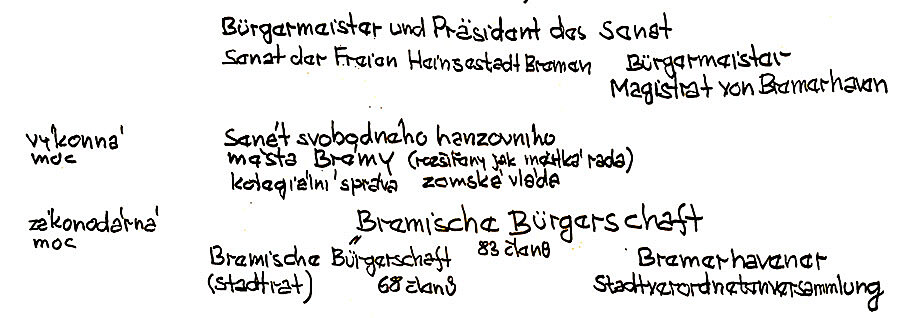 Bürgermeister und Präsident des Senat
Senat der Freien Hansestadt Bremen
Bürgermeister
Magistrat von Bremerhaven
výkonná
moc
Senát svobodného hanzovního
města Bremy (rozšířený jak městká rada)
kolegiální správa zemské vláda
zákonodárná
moc
Bremische Bürgerschaft
83 členů
Bremische Bürgerschaft
(Stadtrat) 68 členů
Bremerhavener
Stadtverordnetenversammlung